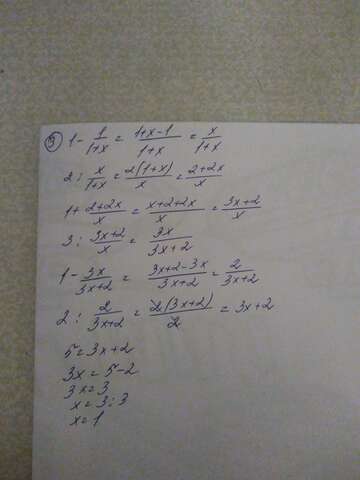 ③ 1 - 1/(1+x) = (1+x-1)/(1+x) = x/(1+x)
2 : x/(1+x) = 2(1+x)/x = (2+2x)/x
1 + (2+2x)/x = (x+2+2x)/x = (3x+2)/x
3 : (3x+2)/x = 3x/(3x+2)
1 - 3x/(3x+2) = (3x+2-3x)/(3x+2) = 2/(3x+2)
2 : 2/(3x+2) = 2(3x+2)/2 = 3x+2
5 = 3x+2
3x = 5-2
3x = 3
x = 3:3
x = 1